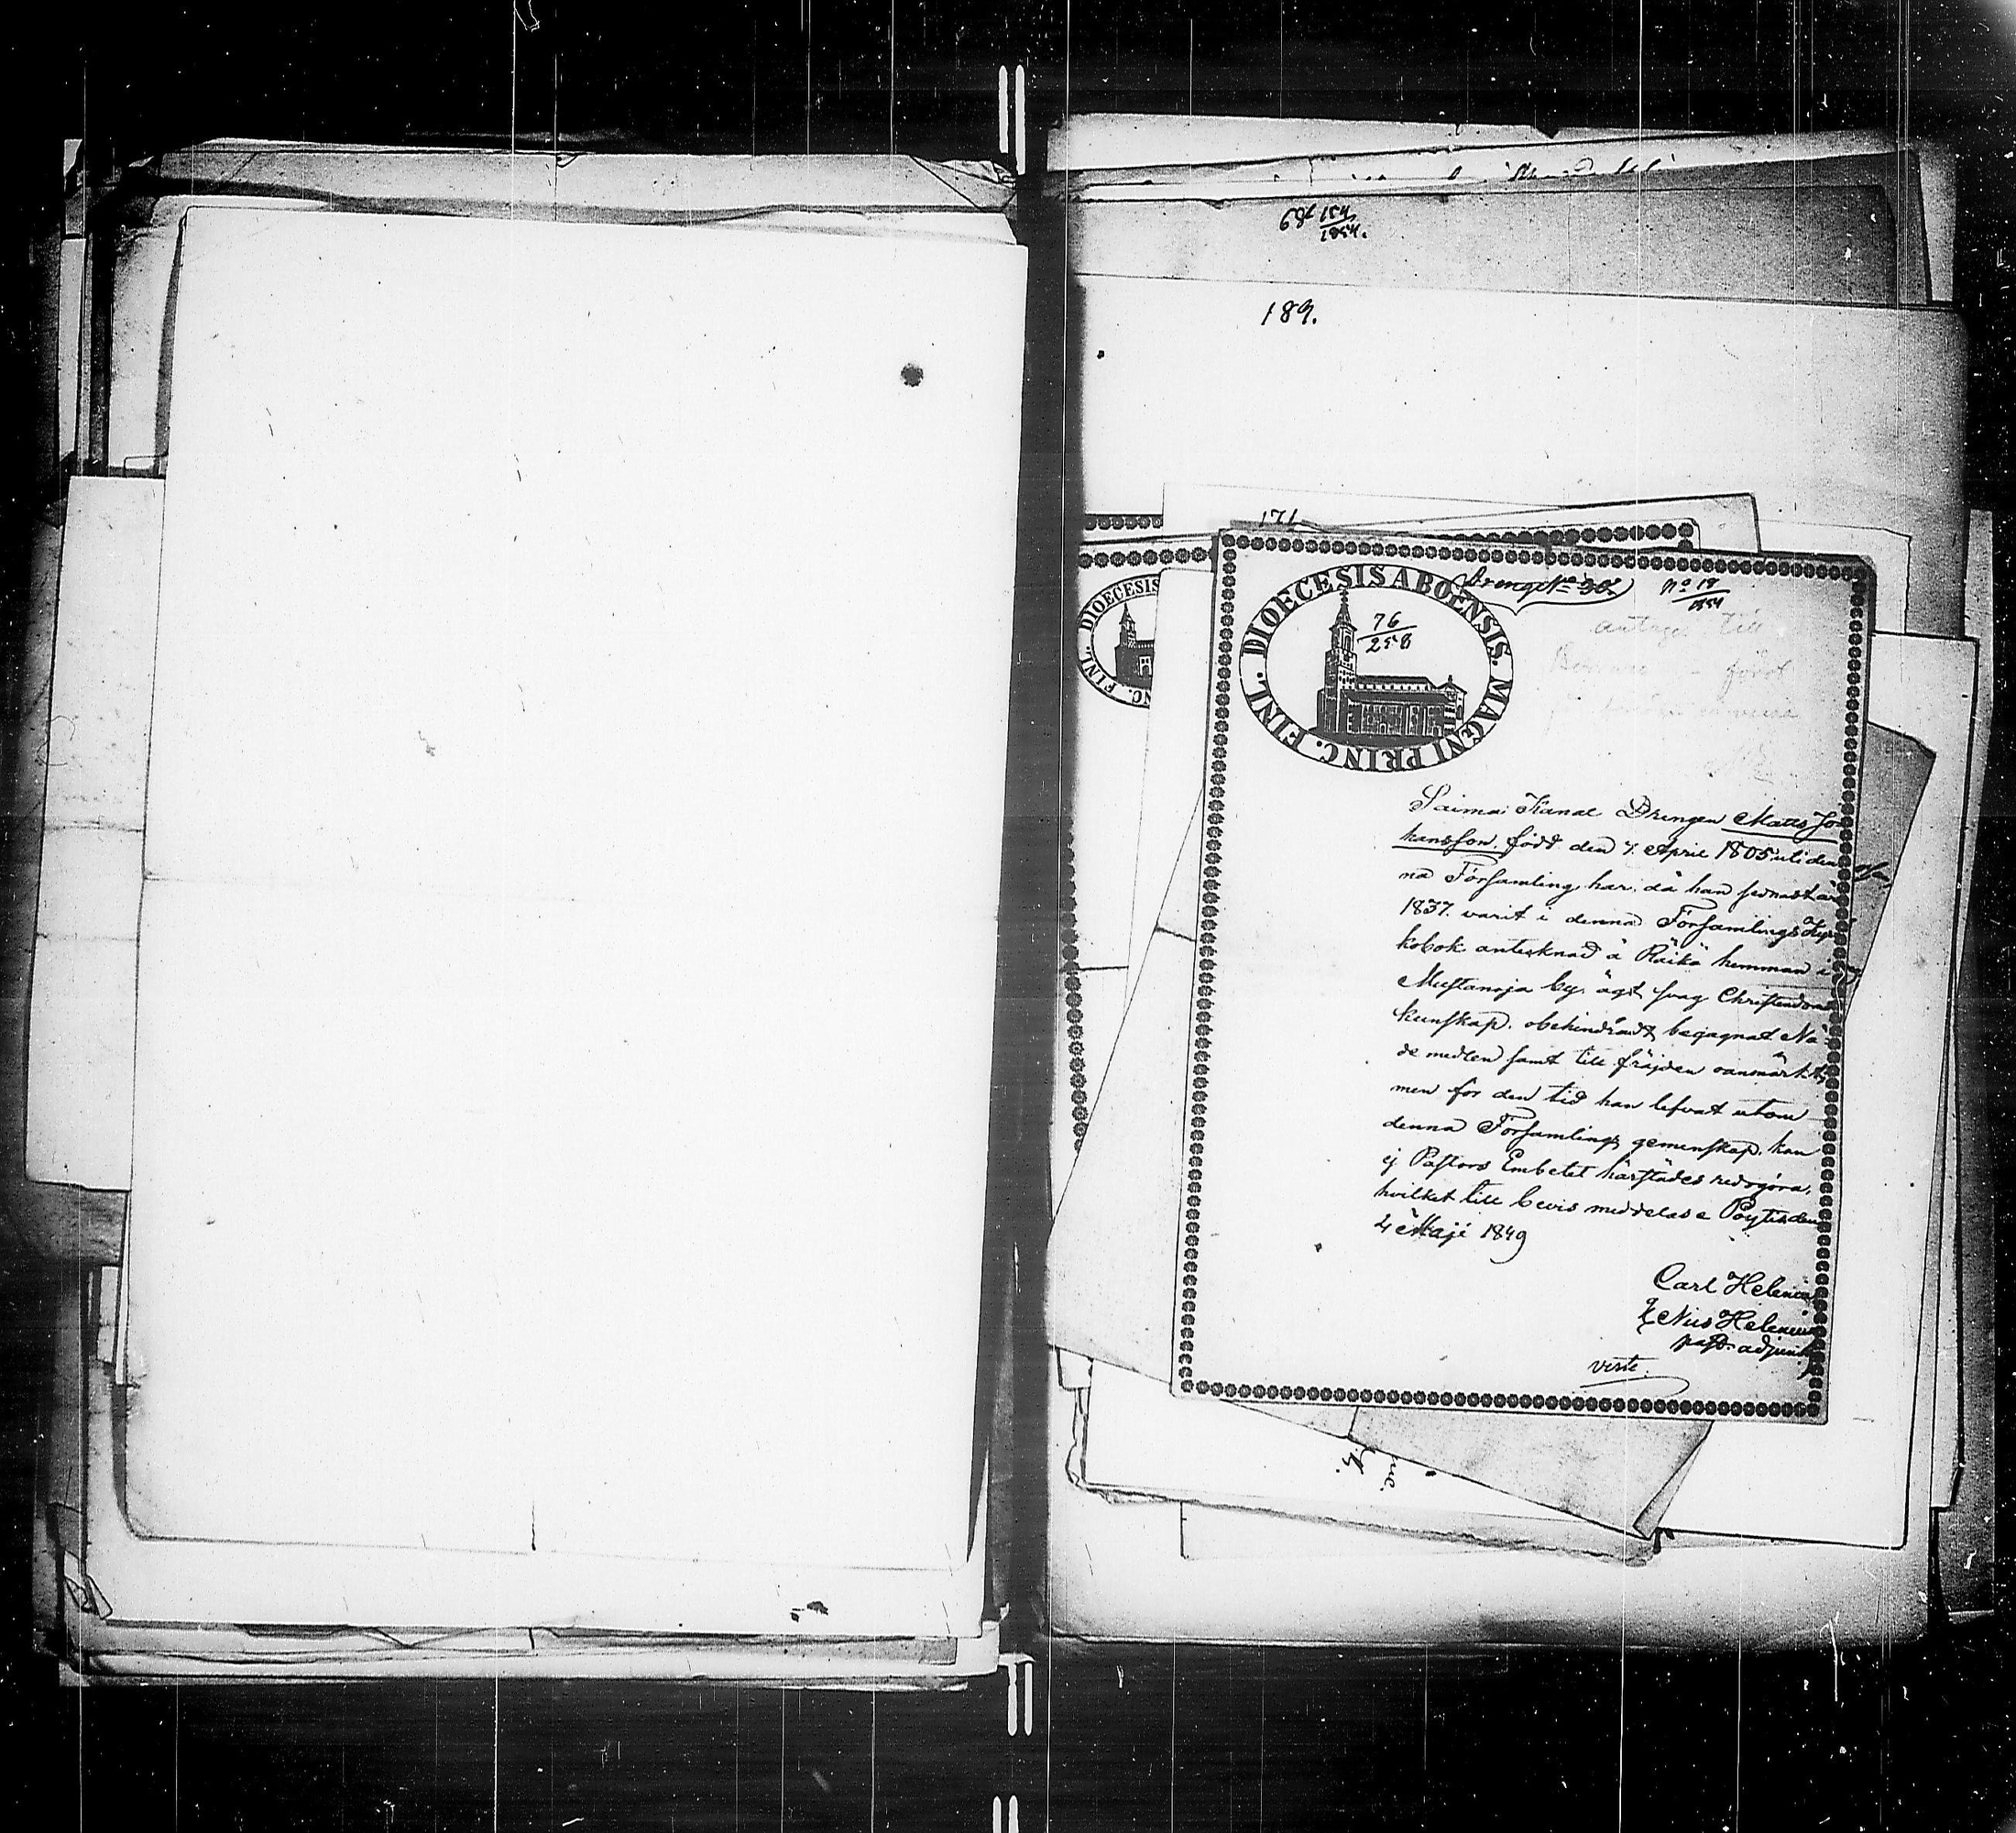 68 154/1854.
189.
171
DIOECESIS
FINL.
DIOECESIS ABOENSIS. MAGNI PRINC. FINL.
76/258
Dreng No 30
No 18/1854
antagen till
född
Saima Kanal Drengen Matts Jo
hansson, född den 7. April 1805 uti den
na Församling har, då han sednast år
1837. varit i denna Församlings Kyr
kobok antecknad å Räikä hemman i
Mustanoja by, ägt svag Christendoms
kunskap, obehindradt begagnat Nå
de medlen samt till fräjden oanmärkt,
men för den tid han lefvat utom
denna Församlings gemenskap, kan
ej Pastors Embetet härstädes redogöra,
hvilket till bevis meddelas. Pöytis den
4 Maji 1849
Carl Helenius
Nils Helenius
past. adjunkt
verte.